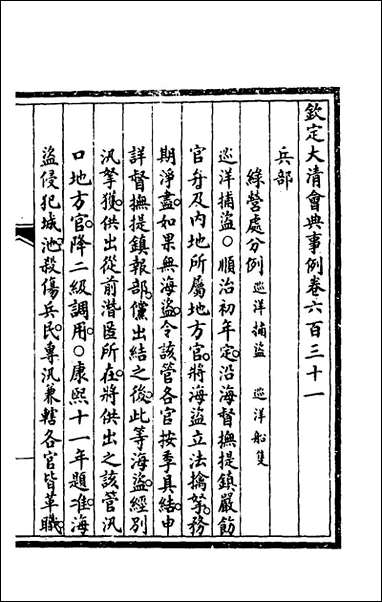 欽定大清會典事例卷六百三十一
兵部
綠營處分例 巡洋捕盜 巡洋船隻
巡洋捕盜○順治初年定沿海督撫提鎮嚴飭
官弁及內地所屬地方官將海盜立法擒拏務
期淨盡如果無海盜令該管各官按季具結申
詳督撫提鎮報部儻出結之後此等海盜經別
汛拏獲供出從前潛匿所在將供出之該管汛
口地方官降二級調用○康熙十一年題准海
盜侵犯城池殺傷兵民專汛兼轄各官皆革職